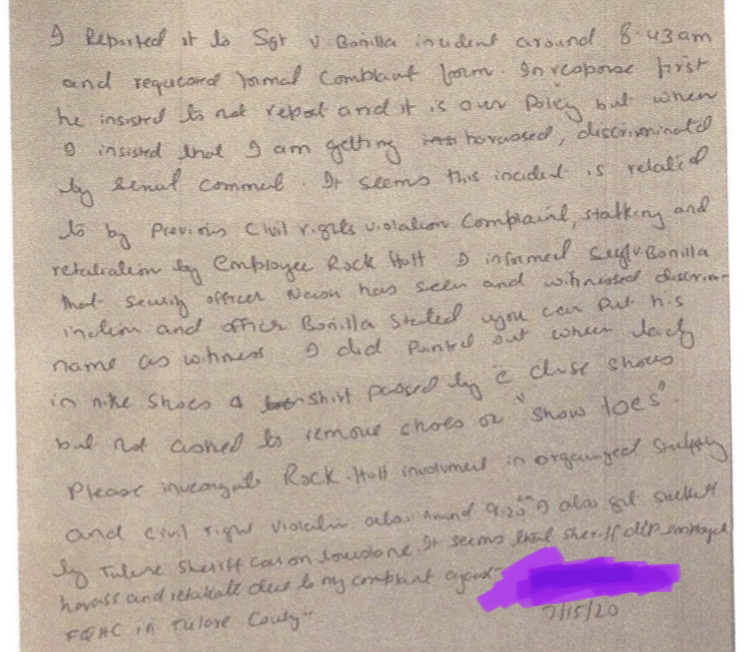 I Reported it to Sgt V. Bonilla incident around 8:43am
and requested formal Complaint form. In response first
he insisted to not report and it is our Policy but when
I insisted that I am getting harrassed, discriminated
by Sexual comment. It seems this incident is related
to by Previous Civil rights violation Complaint, stalking and
retaliation by Employee Rock Hott. I informed Sgt V Bonilla
that security officer has seen and witnessed discrim-
ination and officer Bonilla stated you can put his
name as witness I did Pointed out when lady
in nike shoes & shirt passed by c close shoes
but not asked to remove shoes or "show toes".
Please investigate Rock Hott involvment in organized
and civil right violation also around 9:20am I also got
by Tulare Sheriff Car on It seems that sheriff dep employee
harass and retaliate due to my complaint against
FQHC in Tulare County"
7/15/20